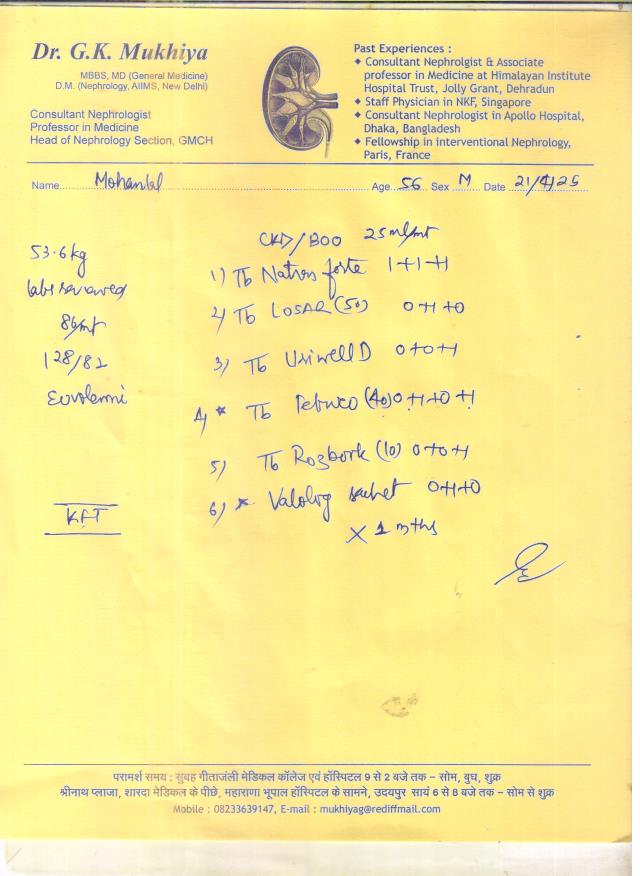 Dr. G.K. Mukhiya
MBBS, MD (General Medicine)
D.M. (Nephrology, AIIMS, New Delhi)
Consultant Nephrologist
Professor in Medicine
Head of Nephrology Section, GMCH
Past Experiences :
Consultant Nephrolgist & Associate
professor in Medicine at Himalayan Institute
Hospital Trust, Jolly Grant, Dehradun
Staff Physician in NKF, Singapore
Consultant Nephrologist in Apollo Hospital,
Dhaka, Bangladesh
Fellowship in interventional Nephrology,
Paris, France
Name Mohanlal Age 56 Sex M Date 21/4/25
53.6 kg
labs reviewed
86/mt
128/82
KFT
CKD/BOO 25 ml/mt
1) Tb forte 1+1+1
2) Tb LOSAR (50) 0+1+0
3) Tb Uriwell D 0+0+1
4) * Tb (40) 0+1+0+1
5) Tb (10) 0+0+1
6) * sachet 0+1+0
mths
परामर्श समय : सुबह गीताजंली मेडिकल कॉलेज एवं हॉस्पिटल 9 से 2 बजे तक – सोम, बुध, शुक्र
श्रीनाथ प्लाजा, शारदा मेडिकल के पीछे, महाराणा भूपाल हॉस्पिटल के सामने, उदयपुर सायं 6 से 8 बजे तक – सोम से शुक्र
Mobile : 08233639147, E-mail : mukhiyag@rediffmail.com